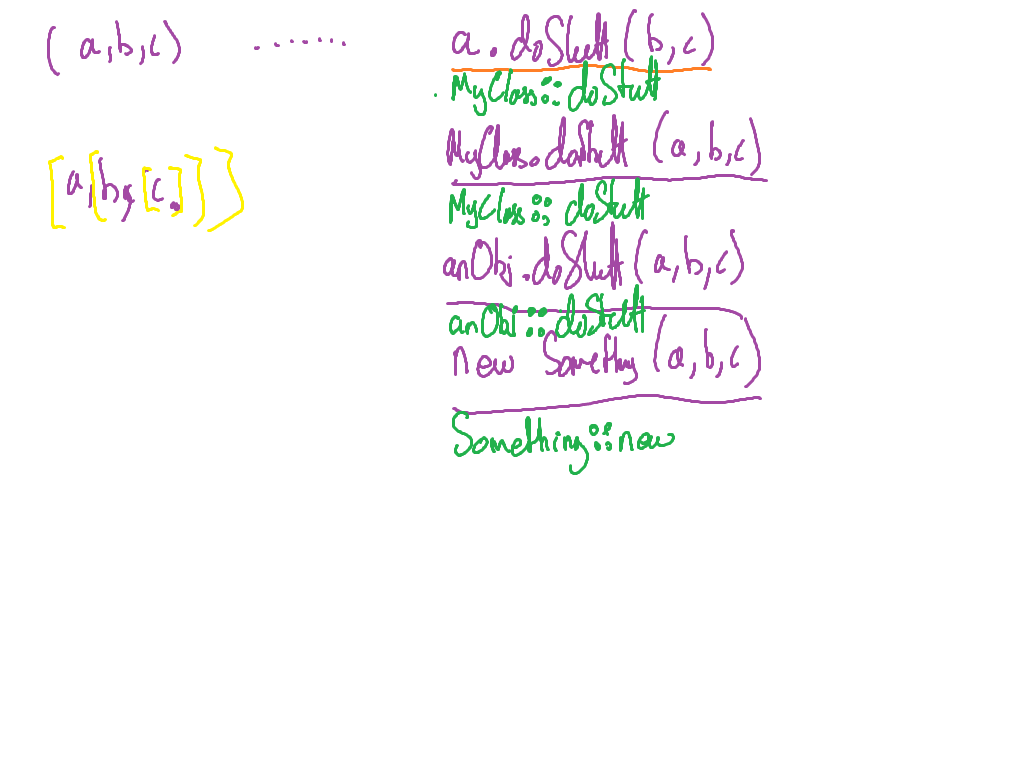 (a,b,c) ....... a.doStuff(b,c)
MyClass::doStuff
MyClass.doStuff(a,b,c)
[a,[b,[c.]]]
MyClass::doStuff
anObj.doStuff(a,b,c)
anObj::doStuff
new Somethg(a,b,c)
Something::new